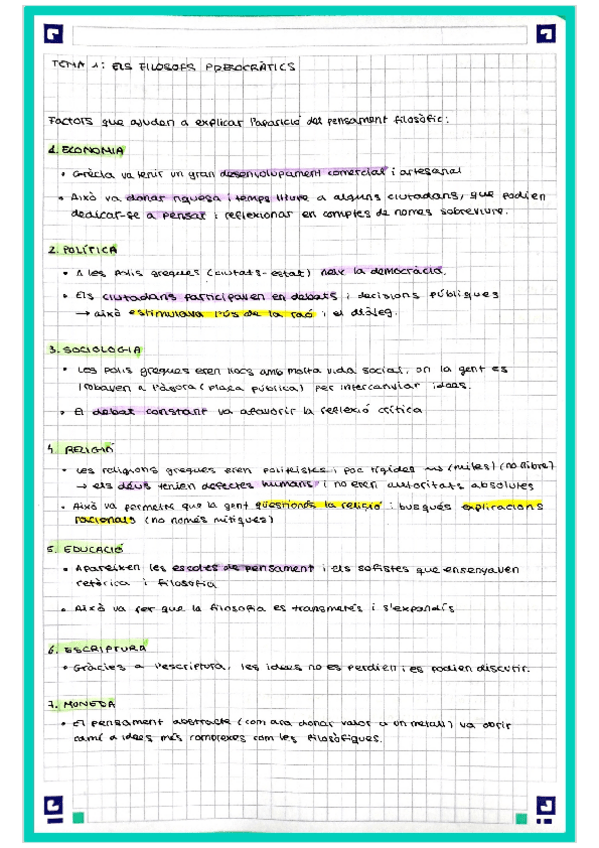 TEMA 1: ELS FILOSOFS PRESOCRÀTICS
Factors que ajuden a explicar l'aparició del pensament filosòfic:
1. ECONOMIA
• Grècia va tenir un gran desenvolupament comercial i artesanal
• Això va donar riquesa i temps lliure a alguns ciutadans, que podien
dedicar-se a pensar i reflexionar en comptes de només sobreviure.
2. POLÍTICA
• A les polis gregues (ciutats-estat) neix la democràcia.
• Els ciutadans participaven en debats i decisions públiques
→ això estimulava l'ús de la raó i el diàleg.
3. SOCIOLOGIA
• Les polis gregues eren llocs amb molta vida social, on la gent es
trobaven a l'àgora (plaça pública) per intercanviar idees.
• El debat constant va afavorir la reflexió crítica
4. RELIGIÓ
• Les religions gregues eren politeistes i poc rígides (mites) (no llibre)
→ els déus tenien defectes humans i no eren autoritats absolutes
• Això va permetre que la gent qüestionés la religió i busqués explicacions
racionals (no només mítiques)
5. EDUCACIÓ
• Apareixen les escoles de pensament i els sofistes que ensenyaven
retòrica i filosofia
• Això va fer que la filosofia es transmetés i s'expandís
6. ESCRIPTURA
• Gràcies a l'escriptura, les idees no es perdien i es podien discutir.
7. MONEDA
• El pensament abstracte (com ara donar valor a un metall) va obrir
camí a idees més complexes com les filosòfiques.